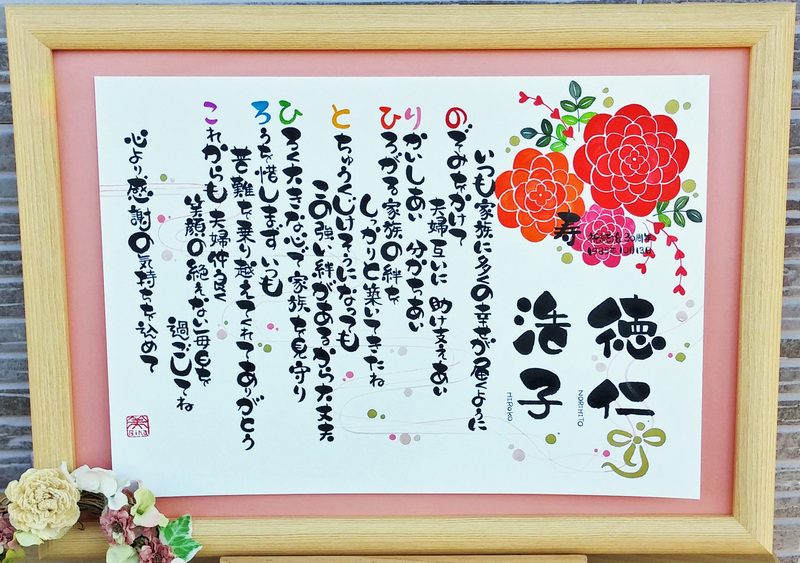 徳仁
NORIHITO
浩子
HIROKO
寿
30周年
10月13日
いつも家族に多くの幸せが届くように
のぞみをかけて
夫婦互いに助け支えあい
りかいしあい 分かちあい
ひろがる家族の絆を
しっかりと築いてきたね
とちゅうくじけそうになっても
この強い絆があるから大丈夫
ひろく大きな心で家族を見守り
ろうを惜しまず いつも
苦難を乗り越えてくれてありがとう
これからも 夫婦仲良く
笑顔の絶えない毎日を
過ごしてね
心より感謝の気持ちを込めて
美